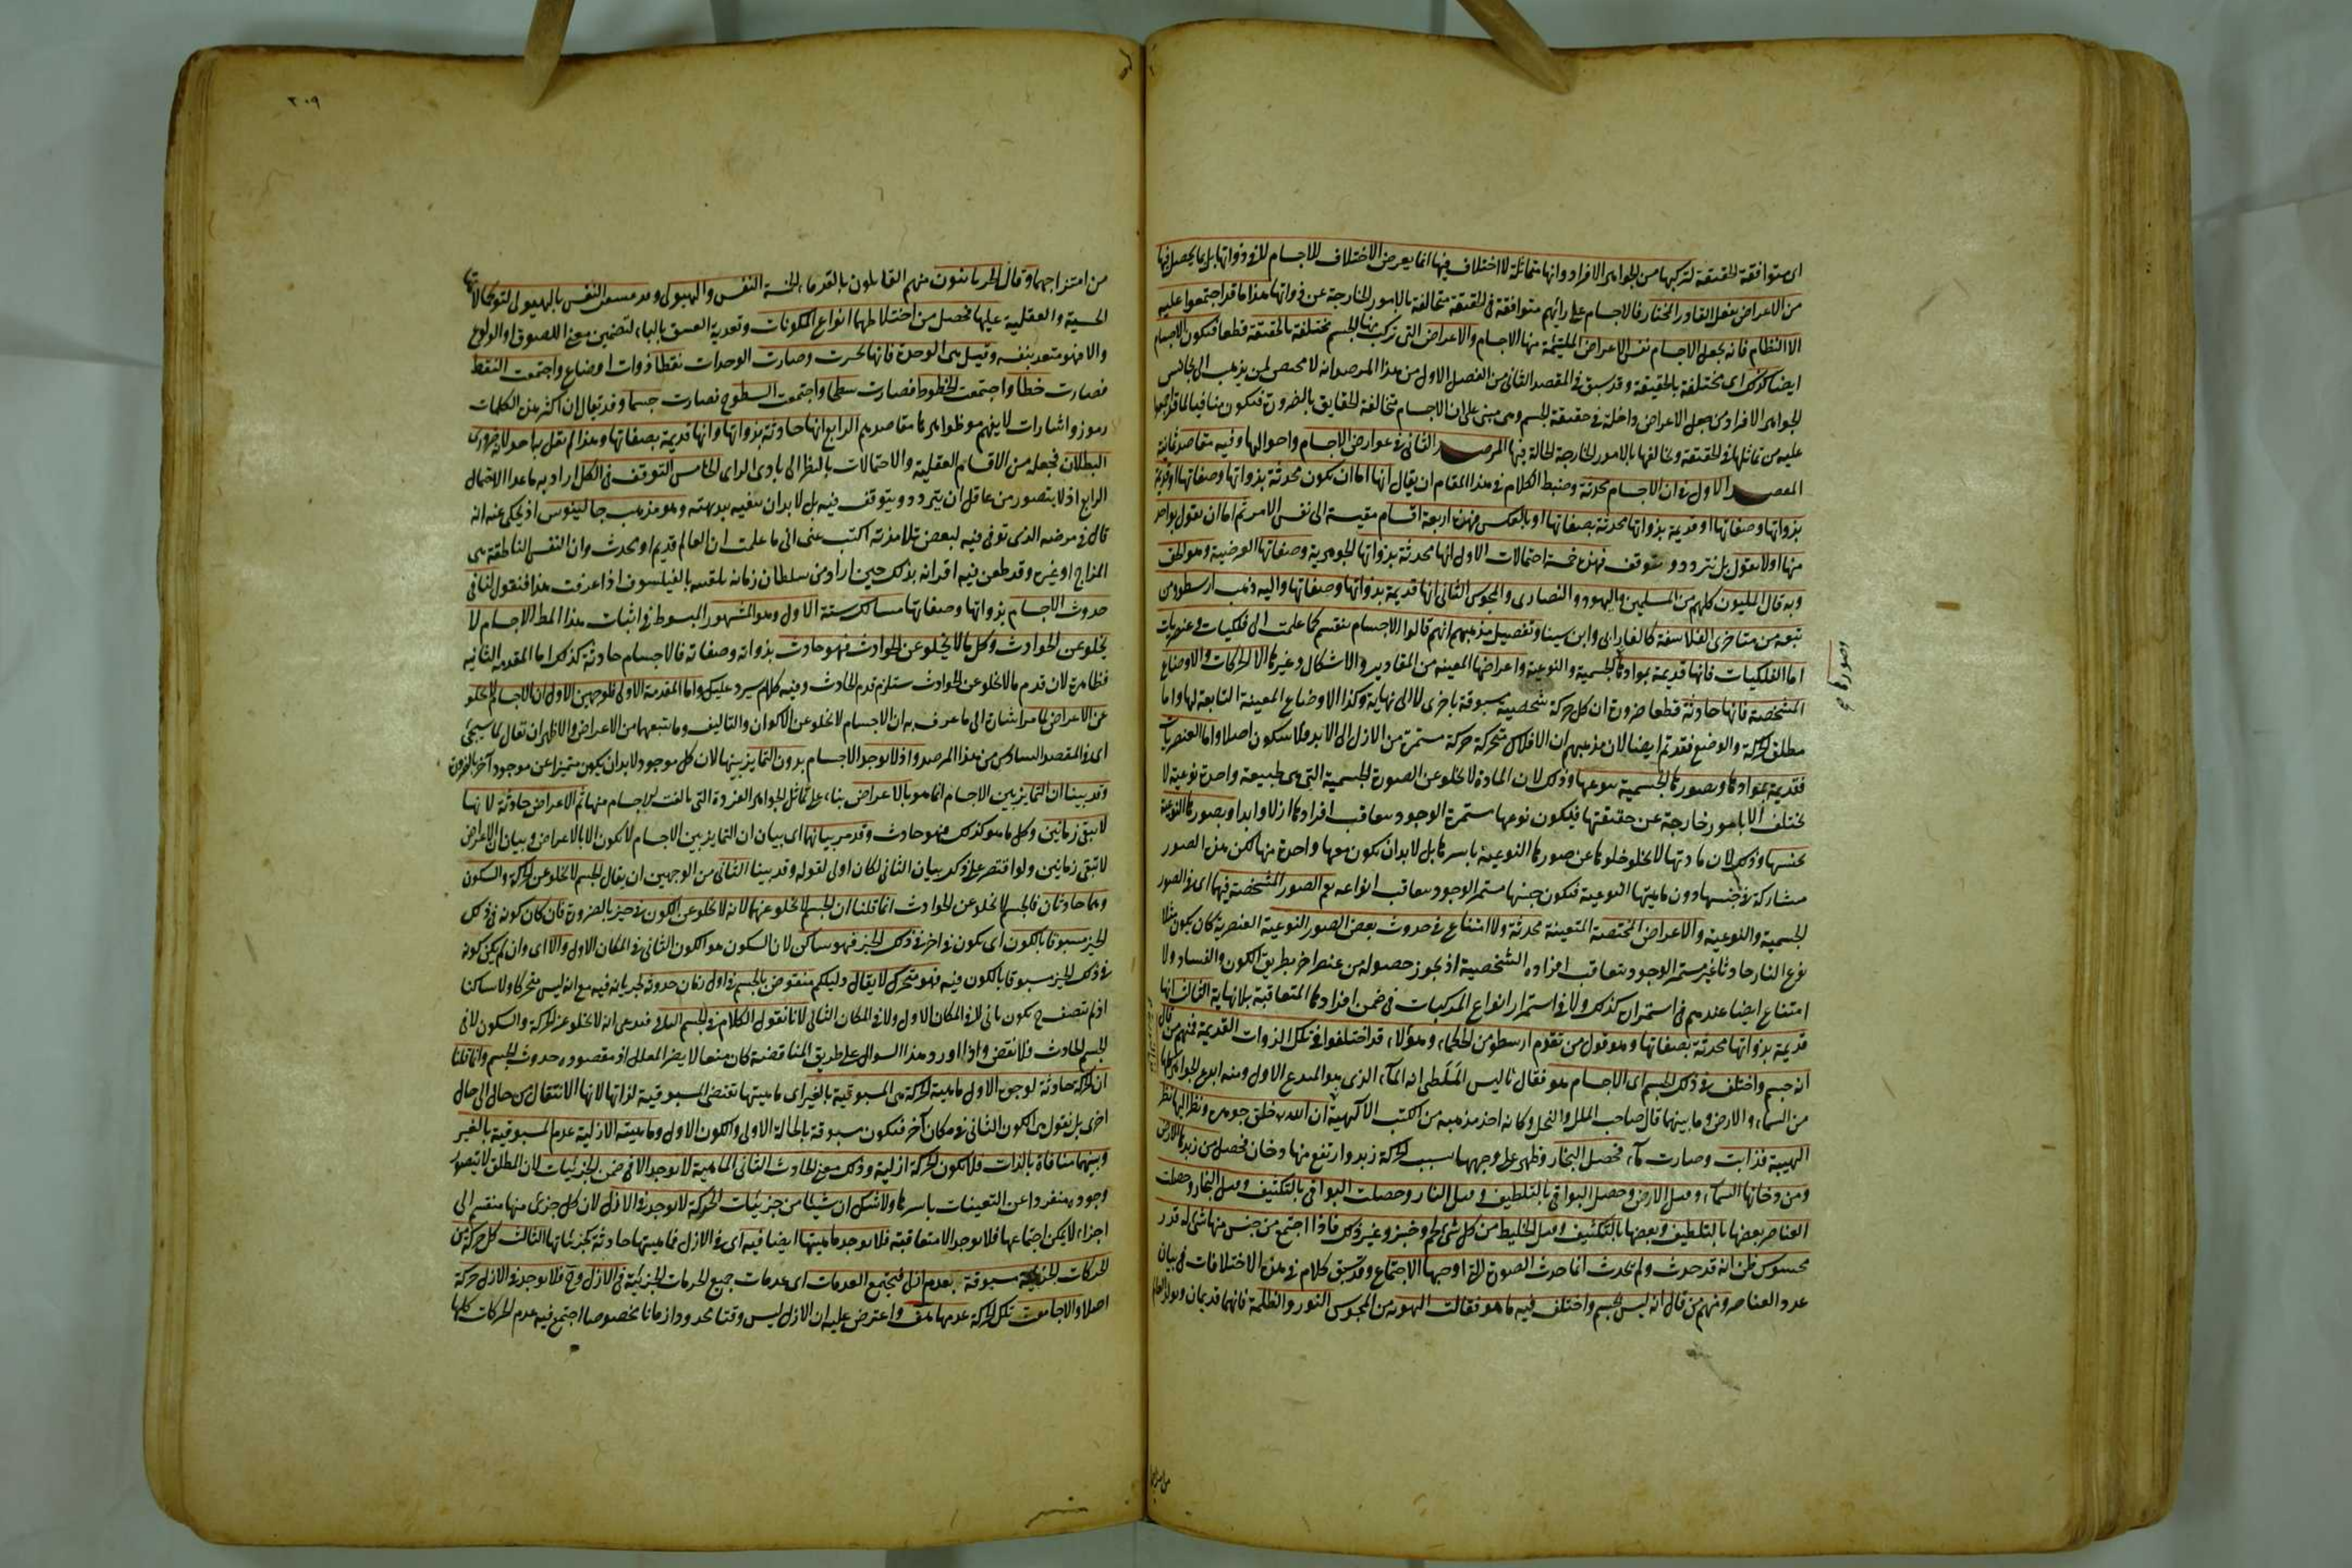 اى متوافقة الحقيقة لتركبها من الجواهر الافراد وانها متماثلة لا اختلاف فيها انما يعرض الاختلاف للاجسام لا فى ذواتها بل بما يحصل فيها
من الاعراض بفعل القادر المختار فالاجسام على رأيهم متوافقة فى الحقيقة متخالفة بالامور الخارجة عن ذواتها هذا ما قد اجتمعوا عليه
الا النظام فانه يجعل الاجسام نفس الاعراض الملتئمة منها الاجسام والاعراض التى تركب منها الجسم مختلفة بالحقيقة قطعا فيكون الاجسام
ايضا كذلك اى مختلفة بالحقيقة وقد سبق فى المقصد الثانى من الفصل الاول من هذا المرصد انه لا محيص لمن يذهب الى تجانس
الجواهر الافراد من جعل الاعراض داخلة فى حقيقة الجسم وهى مبنى على ان الاجسام متخالفة الحقايق بالضرورة فيكون منافيا لما قد اجمعوا
عليه من تماثلها فى الحقيقة وتخالفها بالامور الخارجة الحالة فيها المرصد الثانى فى عوارض الاجسام واحوالها وفيه مقاصد ثمانية
المقصد الاول فى ان الاجسام محدثة وضبط الكلام فى هذا المقام ان يقال انها اما ان يكون محدثة بذواتها وصفاتها او قديمة
بذواتها وصفاتها او قديمة بذواتها محدثة بصفاتها او بالعكس فهذه اربعة اقسام مقيسة الى نفس الامر ثم اما ان نقول بواحد
منها اولا نقول بل نتردد ونتوقف فهذه خمسة احتمالات الاول انها محدثة بذواتها الجوهرية وصفاتها العرضية وهو الحق
وبه قال المليون كلهم من المسلمين واليهود والنصارى والمجوس الثانى انها قديمة بذواتها وصفاتها واليه ذهب ارسطو ومن
تبعه من متاخرى الفلاسفة كالفارابى وابن سينا وتفصيل مذهبهم انهم قالوا الاجسام تنقسم كما علمت الى فلكيات وعنصريات
اما الفلكيات فانها قديمة بموادها الجسمية والنوعية واعراضها المعينة من المقادير والاشكال وغيرها الا الحركات والاوضاع
وصورها صح
المشخصة فانها حادثة قطعا ضرورة ان كل حركة شخصية مسبوقة باخرى لا الى نهاية وكذا الاوضاع المعينة التابعة لها واما
مطلق الحركة والوضع فقديم ايضا لان مذهبهم ان الافلاك متحركة حركة مستمرة من الازل الى الابد فلا سكون اصلا واما العنصريات
فقديمة بموادها وبصورها الجسمية بنوعها وذلك لان المادة لا تخلو عن الصورة الجسمية التى هى طبيعة واحدة نوعية لا
تختلف الا بامور خارجة عن حقيقتها فيكون نوعها مستمرة الوجود بتعاقب افرادها ازلا وابدا وبصورها النوعية
بجنسها وذلك لان مادتها لا تخلو خلوها عن صورها النوعية باسرها بل لابد ان يكون معها واحدة منها لكن هذه الصور
مشاركة فى جنسها دون ماهيتها النوعية فيكون جنسها مستمر الوجود بتعاقب انواعه نعم الصور المشخصة فيهما اى فى الصور
الجسمية والنوعية والاعراض المختصة المتعينة محدثة ولا امتناع فى حدوث بعض الصور النوعية العنصرية كان يكون مثلا
نوع النار حادثا غير مستمر الوجود بتعاقب افراده الشخصية اذ يجوز حصوله من عنصر اخر بطريق الكون والفساد ولا
امتناع ايضا عندهم فى استمراره كذلك ولا فى استمرار انواع المركبات فى ضمن افرادها المتعاقبة بلا نهاية الثالث انها
قديمة بذواتها محدثة بصفاتها وهو قول من تقدم ارسطو من الحكماء وهؤلاء قد اختلفوا فى تلك الذوات القديمة فمنهم من قال
انه جسم واختلف فى ذلك الجسم اى الاجسام هو فقال ثاليس الملطى انه الماء الذى هو المبدع الاول ومنه ابدع الجواهر كلها
من السماء والارض وما بينهما قال صاحب الملل والنحل وكانه اخذ مذهبه من الكتب الالهية ان الله خلق جوهرة ونظر اليها نظر
الهيبة فذابت وصارت ماء فحصل البخار وظهر على وجهها بسبب الحركة زبد وارتفع منها دخان فحصل من زبدها الارض
ومن دخانها السماء وقيل الارض وحصل البواقى بالتلطيف وقيل النار وحصلت البواقى بالتكثيف وقيل البخار وحصلت
العناصر بعضها بالتلطيف وبعضها بالتكثيف وقيل الخليط من كل شئ لحم وخبز وغير ذلك فاذا اجتمع من جنس منها شئ له قدر
محسوس ظن انه قد حدث ولم يحدث انما حدث الصورة التى اوجبها الاجتماع وقد سبق كلام فى هذه الاختلافات فى بيان
عدد العناصر ومنهم من قال انه ليس بجسم واختلف فيه ما هو فقالت الثنوية من المجوس النور والظلمة فانهما قديمان وتولد العالم
من امتزاجهما
٢٠٩
من امتزاجهما وقال الحرنانيون منهم القائلون بالقدماء الخمسة النفس والهيولى وقد عشقت النفس بالهيولى لتوقف كمالاتها
الحسية والعقلية عليها فحصل من اختلاطهما انواع المكونات وتعدية العشق بالباء لتضمين معنى اللصوق او الولوع
والا فهو متعد بنفسه وقيل هى الوحدة فانها تحيزت وصارت الوحدات نقطا ذوات اوضاع واجتمعت النقط
فصارت خطا واجتمعت الخطوط فصارت سطحا واجتمعت السطوح فصارت جسما وقد يقال ان اكثر هذه الكلمات
رموز واشارات لا يفهم من ظواهرها مقاصدهم الرابع انها حادثة بذواتها وانها قديمة بصفاتها وهذا لم يقل به احد لانه ضرورى
البطلان فجعله من الاقسام العقلية والاحتمالات بالنظر الى بادى الراى الخامس التوقف فى الكل اراد به ما عدا الاحتمال
الرابع اذ لا يتصور من عاقل ان يتردد ويتوقف فيه بل لابد ان ينفيه ببديهته وهو مذهب جالينوس اذ يحكى عنه انه
قال فى مرضه الذى توفى فيه لبعض تلامذته اكتب عنى انى ما علمت ان العالم قديم او محدث وان النفس الناطقة هى
المزاج او غيره وقد طعن فيه اقرانه بذلك حين اراد من سلطان زمانه تلقيبه بالفيلسوف اذا عرفت هذا فنقول لنا فى
حدوث الاجسام بذواتها وصفاتها مسالك ستة الاول وهو المشهور المبسوط فى اثبات هذا المطلب الاجسام لا
يخلو عن الحوادث وكل ما لا يخلو عن الحوادث فهو حادث بذواته وصفاته فالاجسام حادثة كذلك اما المقدمة الثانية
فظاهرة لان قدم ما لا يخلو عن الحوادث يستلزم قدم الحادث وفيه كلام سيرد عليك واما المقدمة الاولى فلوجهين الاول ان الاجسام لا تخلو
عن الاعراض لما مر اشارة الى ما عرف به ان الاجسام لا تخلو عن الاكوان والتاليف وما يتبعهما من الاعراض والاظهر ان يقال لما سيجئ
اى فى المقصد السادس من هذا المرصد واذ لا يوجد الاجسام بدون التمايز بينها لان كل موجود لابد ان يكون متميزا عن موجود آخر بالضرورة
وقد بينا ان التمايز بين الاجسام انما هو بالاعراض بناء على تماثل الجواهر الفردة التى تالفت الاجسام منها ثم الاعراض حادثة لانها
لا تبقى زمانين وكل ما هو كذلك فهو حادث وقد مر بيانهما اى بيان ان التمايز بين الاجسام لا يكون الا بالاعراض وبيان ان الاعراض
لا تبقى زمانين ولو اقتصر على ذكر بيان الثانى لكان اولى لقوله وقد بينا الثانى من الوجهين ان يقال الجسم لا يخلو عن الحركة والسكون
وهما حادثان فالجسم لا يخلو عن الحوادث انما قلنا ان الجسم لا يخلو عنهما لانه لا يخلو عن الكون فى حيز بالضرورة فان كان كونه فى ذلك
الحيز مسبوقا بالكون اى بكون آخر فى ذلك الحيز فهو ساكن لان السكون هو الكون الثانى فى المكان الاول والا اى وان لم يكن كونه
فى ذلك الحيز مسبوقا بالكون فيه فهو متحرك لا يقال دليلكم منقوض بالجسم فى اول زمان حدوثه لجريانه فيه مع انه ليس متحركا ولا ساكنا
اذ لم يتصف ح بكون ثانى لا فى المكان الاول ولا فى المكان الثانى لانا نقول الكلام فى الجسم الباقى فندعى انه لا يخلو عن الحركة والسكون لا فى
الجسم الحادث فلا نقض واذا اورد هذا السوال على طريق المناقضة كان منعا لا يضر المعلل اذ مقصوده حدوث الجسم وانما قلنا
ان الحركة حادثة لوجوه الاول ماهية الحركة هى المسبوقية بالغير اى ماهيتها تقتضى المسبوقية لذاتها لانها الانتقال من حال الى حال
اخرى بل نقول هى الكون الثانى فى مكان آخر فيكون مسبوقة بالحالة الاولى والكون الاول وماهية الازلية عدم المسبوقية بالغير
وبينهما منافاة بالذات فلا يكون الحركة ازلية وذلك معنى الحادث الثانى الماهية لا يوجد الا فى ضمن الجزئيات لان المطلق لا يتصور
وجوده منفردا عن التعينات باسرها ولا شك ان شيئا من جزئيات الحركة لا يوجد فى الازل لان كل جزئى منها منقسم الى
اجزاء لا يمكن اجتماعها فلا يوجد الا متعاقبة فلا يوجد ماهيتها ايضا فيه اى فى الازل فماهيتها حادثة كجزئياتها الثالث كل حركة من
الحركات الجزئية مسبوقة بعدم ازلى فيجتمع العدمات اى عدمات جميع الحركات الجزئية فى الازل وح فلا يوجد فى الازل حركة
اصلا والا جامعت تلك الحركة عدمها هف واعترض عليه ان الازل ليس وقتا محدودا زمانا مخصوصا اجتمع فيه عدم الحركات كلها